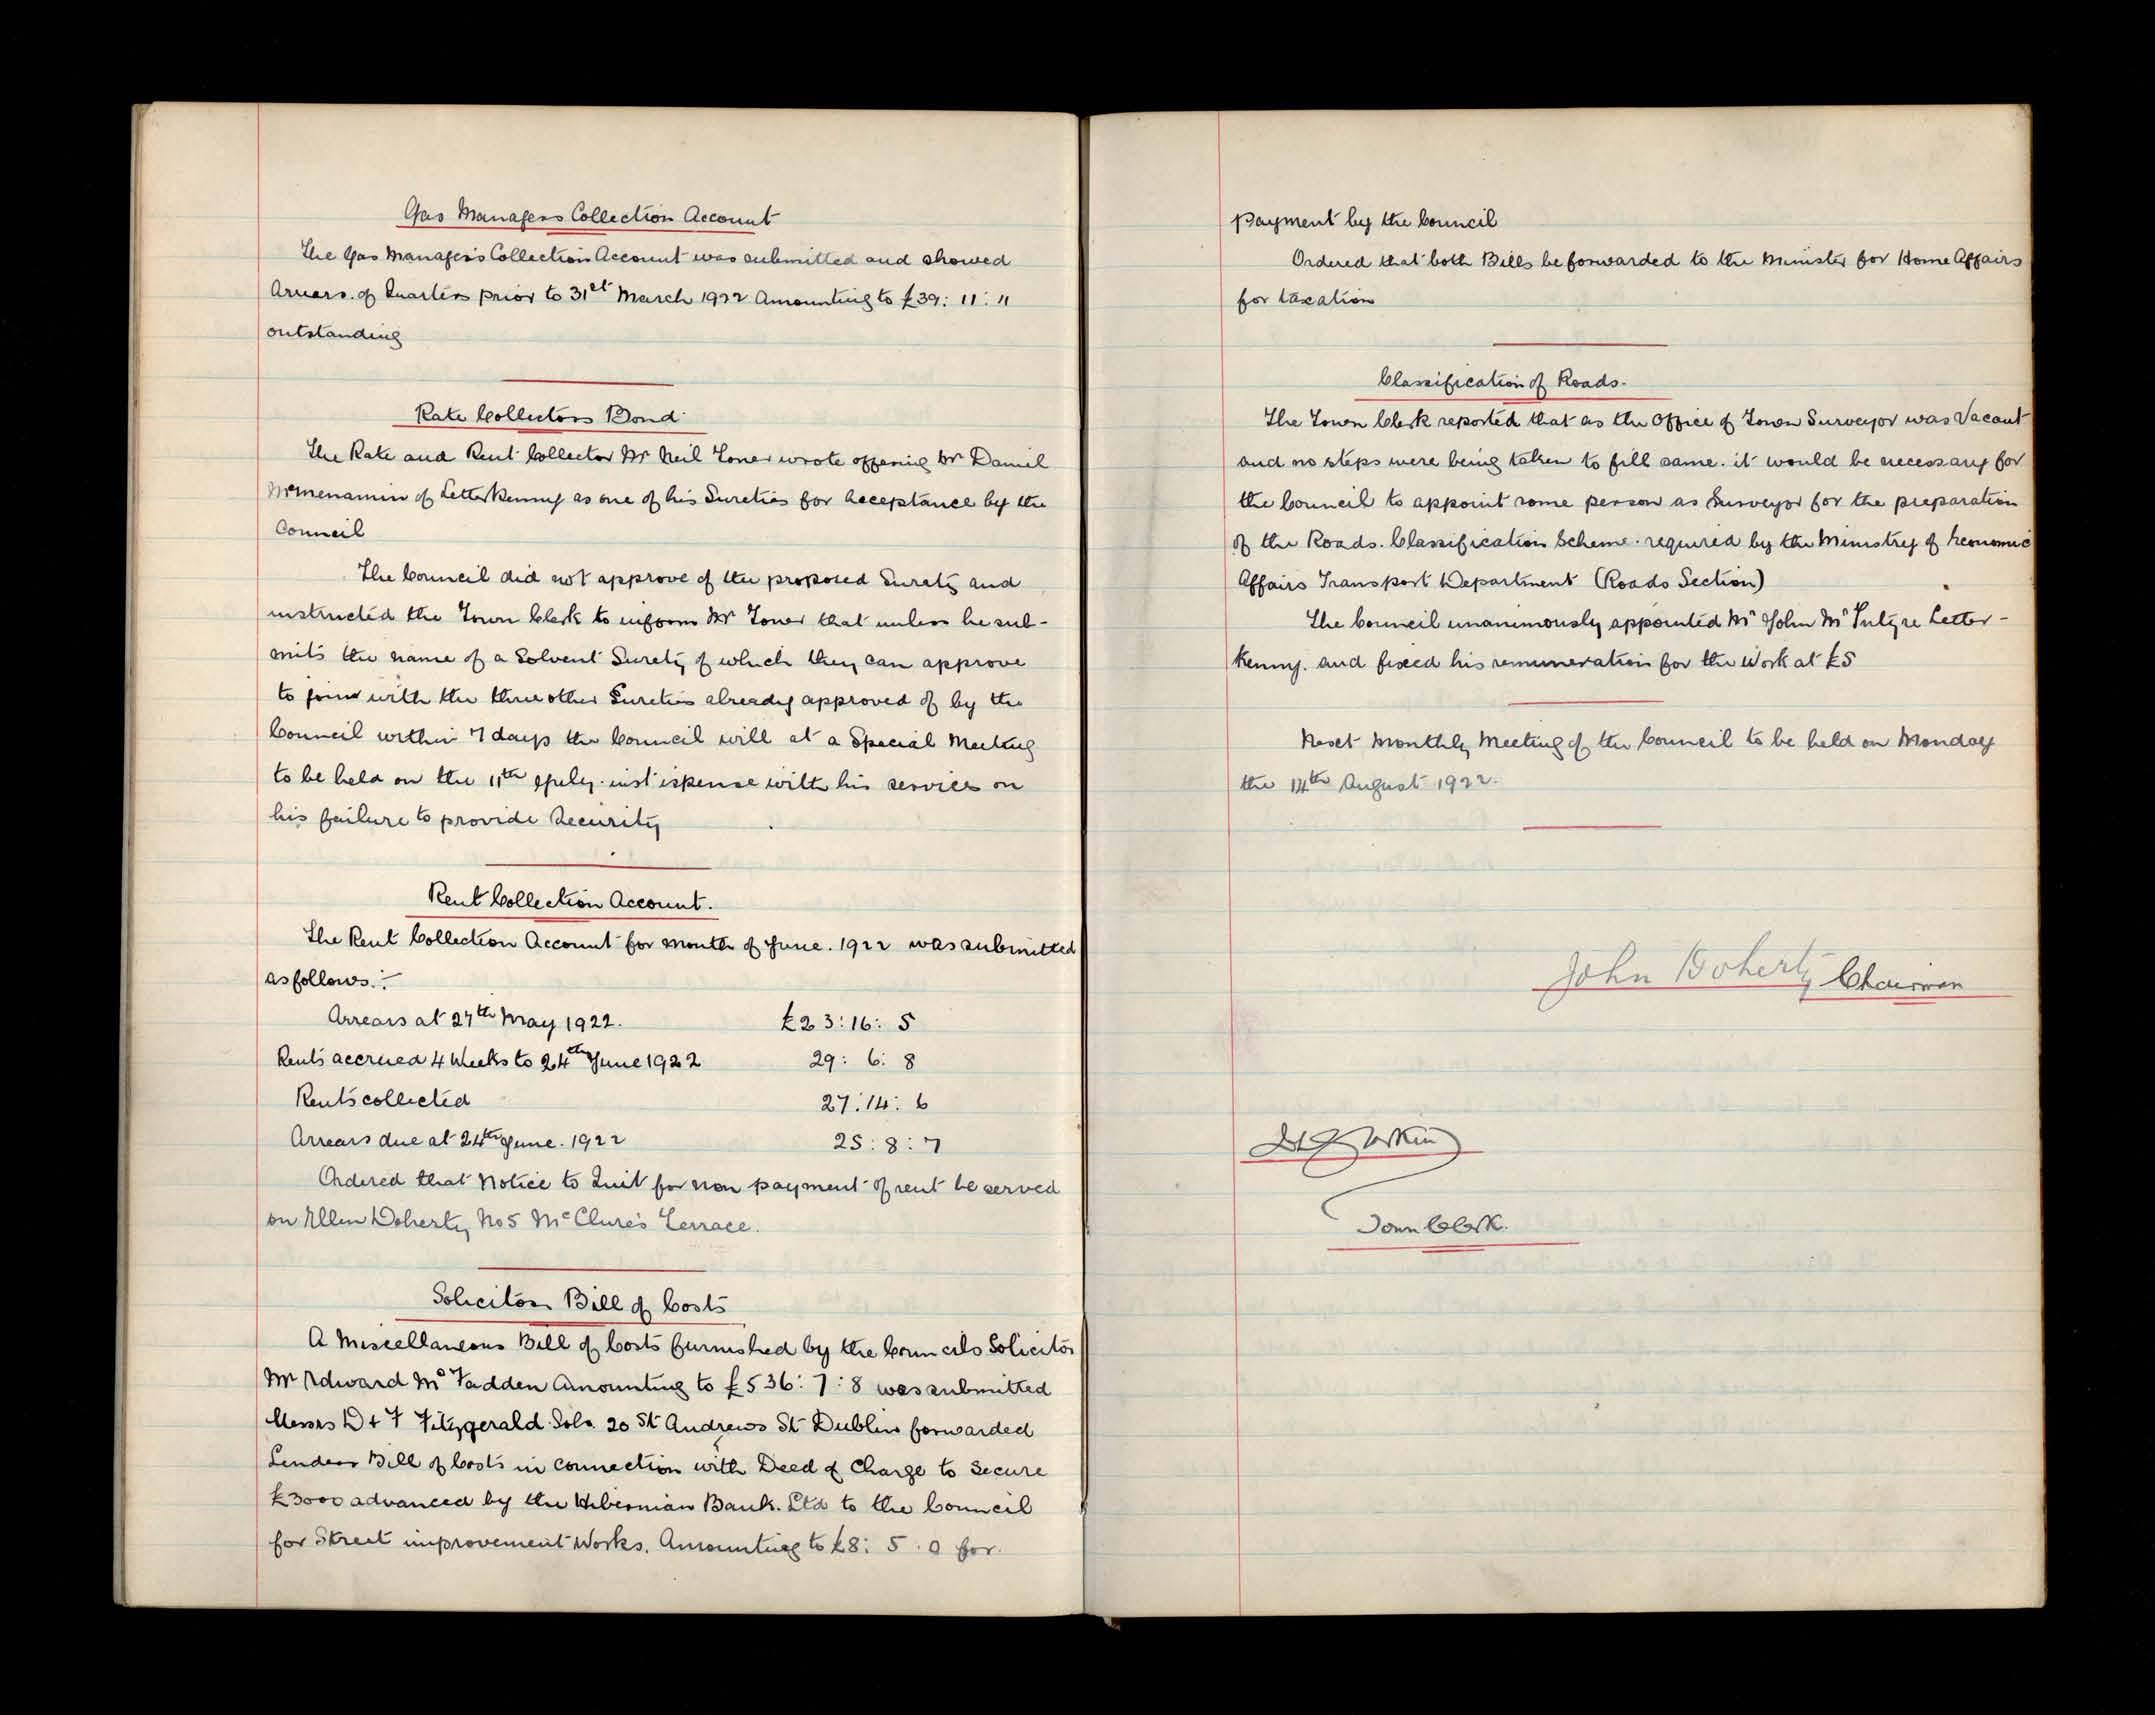 Gas Managers Collection Account
The Gas Manager's Collection Account was submitted and showed
Arrears of Quarters prior to 31st March 1922 Amounting to £39: 11: 11
outstanding
Rate Collectors Bond
The Rate and Rent Collector Mr Neil Toner wrote offering Mr Daniel
McMenamin of Letterkenny as one of his Sureties for Acceptance by the
Council
The Council did not approve of the proposed Surety and
instructed the Town Clerk to inform Mr Toner that unless he sub-
mits the name of a Solvent Surety of which they can approve
to join with the three other Sureties already approved of by the
Council within 7 days the Council will at a Special Meeting
to be held on the 11th July inst ispense with his services on
his failure to provide Security
Rent Collection Account.
The Rent Collection Account for month of June. 1922 was submitted
as follows:-
Arrears at 27th May 1922. £23:16: 5
Rents accrued 4 Weeks to 24th June 1922 29: 6: 8
Rents collected 27:14: 6
Arrears due at 24th June. 1922 25:8:7
Ordered that Notice to Quit for non payment of rent be served
on Ellen Doherty No 5 McClure's Terrace.
Solicitors Bill of Costs
A Miscellaneous Bill of Costs furnished by the Councils Solicitor
Mr Edward McFadden Amounting to £536: 7: 8 was submitted
Messrs D & F Fitzgerald Sols. 20 St Andrews St Dublin forwarded
Lenders Bill of Costs in connection with Deed of Charge to Secure
£3000 advanced by the Hibernian Bank. Ltd to the Council
for Street improvement Works. Amounting to £8: 5. 0 for
Payment by the Council
Ordered that both Bills be forwarded to the Minister for Home Affairs
for taxation
Classification of Roads.
The Town Clerk reported that as the Office of Town Surveyor was Vacant
and no steps were being taken to fill same. it would be necessary for
the Council to appoint some person as Surveyor for the preparation
of the Roads. Classification Scheme. required by the Ministry of Economic
Affairs Transport Department (Roads Section)
The Council unanimously appointed Mr John McIntyre Letter-
kenny. and fixed his remuneration for the Work at £5
Next Monthly Meeting of the Council to be held on Monday
the 14th August 1922.
John Doherty Chairman
Town Clerk.